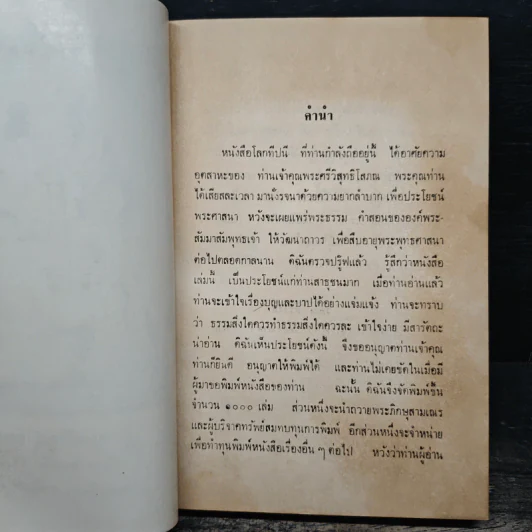 คำนำ
หนังสือโลกทีปนี ที่ท่านกำลังถืออยู่นี้ ได้อาศัยความ
อุตสาหะของ ท่านเจ้าคุณพระศรีวิสุทธิโสภณ พระคุณท่าน
ได้เสียสละเวลา มานั่งรจนาด้วยความยากลำบาก เพื่อประโยชน์
พระศาสนา หวังจะเผยแพร่พระธรรม คำสอนขององค์พระ-
สัมมาสัมพุทธเจ้า ให้วัฒนาถาวร เพื่อสืบอายุพระพุทธศาสนา
ต่อไปตลอดกาลนาน ดิฉันตรวจปรู๊ฟแล้ว รู้สึกว่าหนังสือ
เล่มนี้ เป็นประโยชน์แก่ท่านสาธุชนมาก เมื่อท่านอ่านแล้ว
ท่านจะเข้าใจเรื่องบุญและบาปได้อย่างแจ่มแจ้ง ท่านจะทราบ
ว่า ธรรมสิ่งใดควรทำธรรมสิ่งใดควรละ เข้าใจง่าย มีสารัตถะ
น่าอ่าน ดิฉันเห็นประโยชน์ดังนี้ จึงขออนุญาตท่านเจ้าคุณ
ท่านก็ยินดี อนุญาตให้พิมพ์ได้ และท่านไม่เคยขัดในเมื่อมี
ผู้มาขอพิมพ์หนังสือของท่าน ฉะนั้น ดิฉันจึงจัดพิมพ์ขึ้น
จำนวน ๑๐๐๐ เล่ม ส่วนหนึ่งจะนำถวายพระภิกษุสามเณร
และผู้บริจาคทรัพย์สมทบทุนการพิมพ์ อีกส่วนหนึ่งจะจำหน่าย
เพื่อทำทุนพิมพ์หนังสือเรื่องอื่น ๆ ต่อไป หวังว่าท่านผู้อ่าน